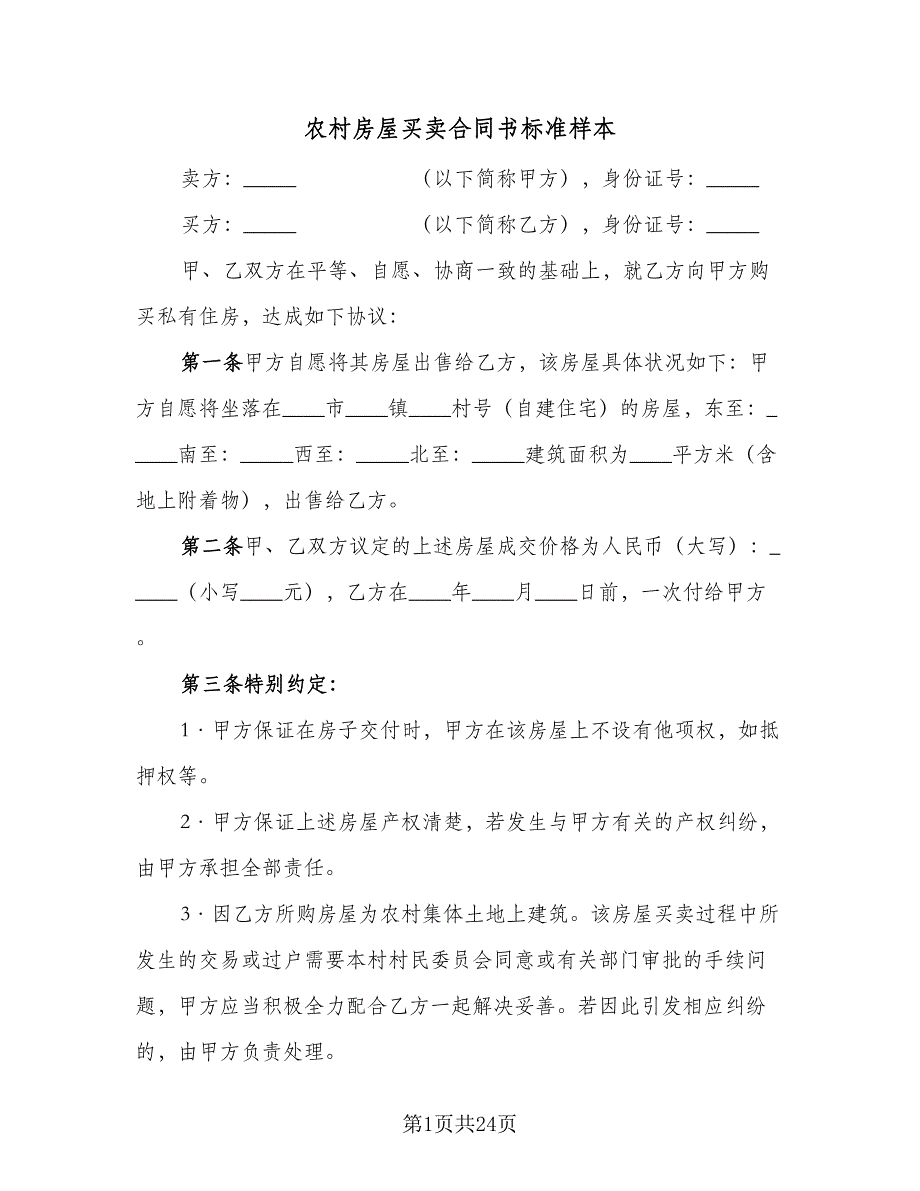 农村房屋买卖合同书标准样本
卖方：_____ （以下简称甲方），身份证号：_____
买方：_____ （以下简称乙方），身份证号：_____
甲、乙双方在平等、自愿、协商一致的基础上，就乙方向甲方购
买私有住房，达成如下协议：
第一条甲方自愿将其房屋出售给乙方，该房屋具体状况如下：甲
方自愿将坐落在____市____镇____村号（自建住宅）的房屋，东至：_
____南至：_____西至：_____北至：_____建筑面积为____平方米（含
地上附着物），出售给乙方。
第二条甲、乙双方议定的上述房屋成交价格为人民币（大写）：_
____（小写____元），乙方在____年____月____日前，一次付给甲方
。
第三条特别约定：
1·甲方保证在房子交付时，甲方在该房屋上不设有他项权，如抵
押权等。
2·甲方保证上述房屋产权清楚，若发生与甲方有关的产权纠纷，
由甲方承担全部责任。
3·因乙方所购房屋为农村集体土地上建筑。该房屋买卖过程中所
发生的交易或过户需要本村村民委员会同意或有关部门审批的手续问
题，甲方应当积极全力配合乙方一起解决妥善。若因此引发相应纠纷
的，由甲方负责处理。
第1页共24页